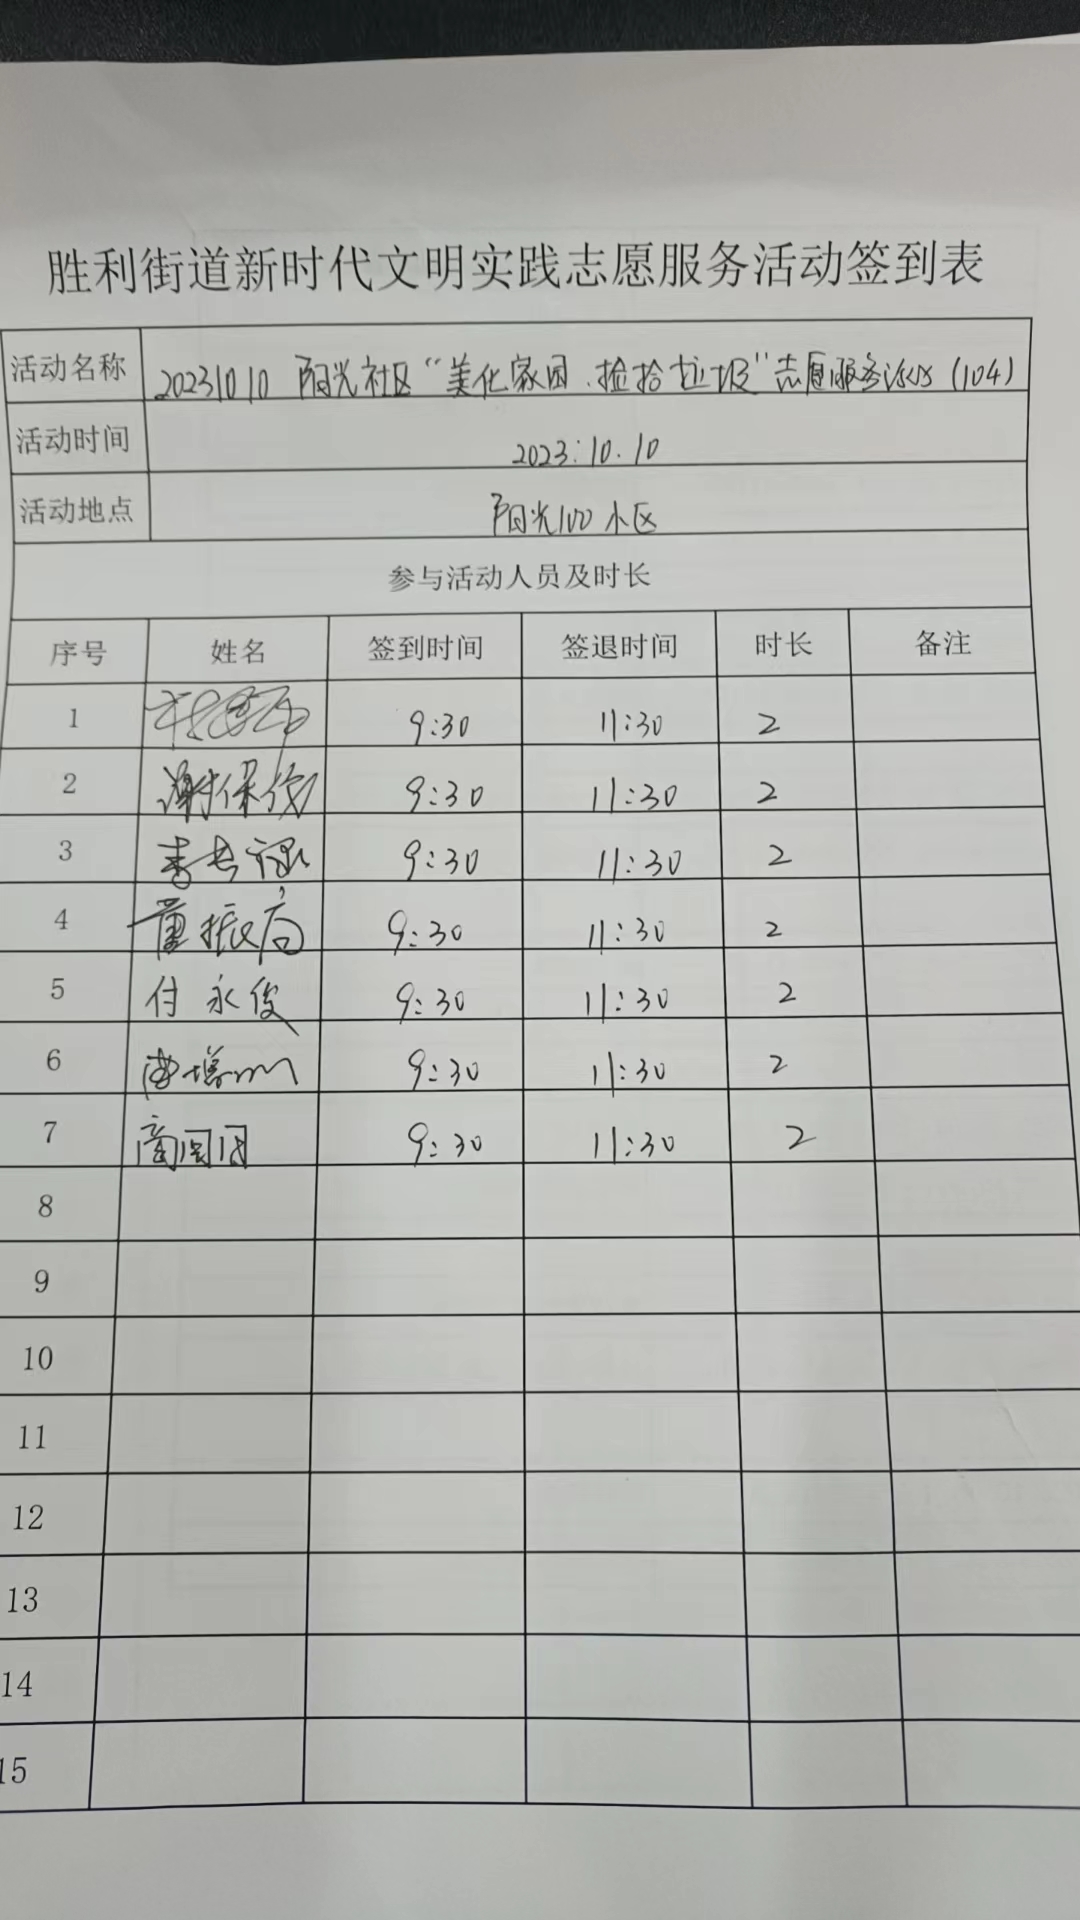 胜利街道新时代文明实践志愿服务活动签到表
活动名称 20231010 阳光社区“美化家园、捡拾垃圾”志愿服务活动(104)
活动时间 2023.10.10
活动地点 阳光100小区
参与活动人员及时长
序号 姓名 签到时间 签退时间 时长 备注
1 9:30 11:30 2
2 谢保俊 9:30 11:30 2
3 李长禄 9:30 11:30 2
4 董振高 9:30 11:30 2
5 付永俊 9:30 11:30 2
6 曲增 9:30 11:30 2
7 商圆圆 9:30 11:30 2
8
9
10
11
12
13
14
15